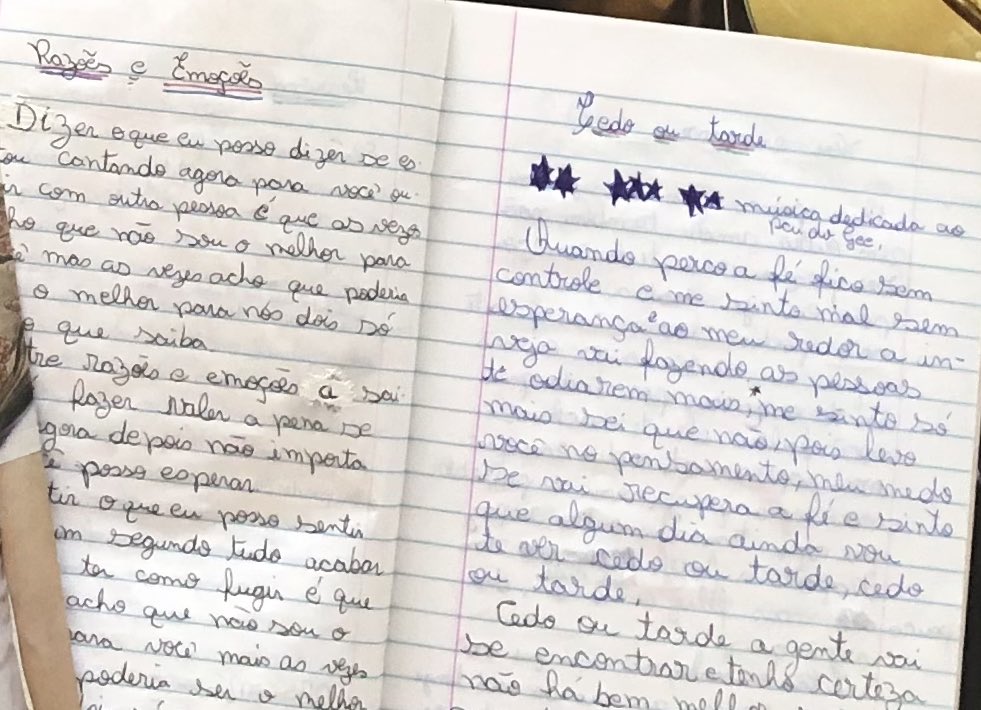 Razoẽs e Emoçoẽs
Dizer o que eu posso dizer se es.
ou cantando agora para você ou.
ir com outra pessoa é que as vezes
ho que não sou o melhor para
ê mas as vezes acho que poderia
o melhor para nós dois só
o que saiba.
tre razoẽs e emoçoẽs a sai
fazer valer a pena se
gora depois não importa
ê posso esperar
tir o que eu posso sentir
um segundo tudo acabar
ter como fugir é que
acho que não sou o
para você mais as vezes
poderia ser o melhor
Cedo ou tarde
música dedicada ao
pai do gee.
Quando perco a fé fico sem
controle e me sinto mal sem
esperança e ao meu redor a in-
veja vai fazendo as pessoas
te odiarem mais, * me sinto só
mais sei que não, pois levo
você no pensamento, meu medo
se vai recupera a fé e sinto
que algum dia ainda vou
te ver cedo ou tarde, cedo
ou tarde,
Cedo ou tarde a gente vai
se encontrar e tenho certeza
não há bem